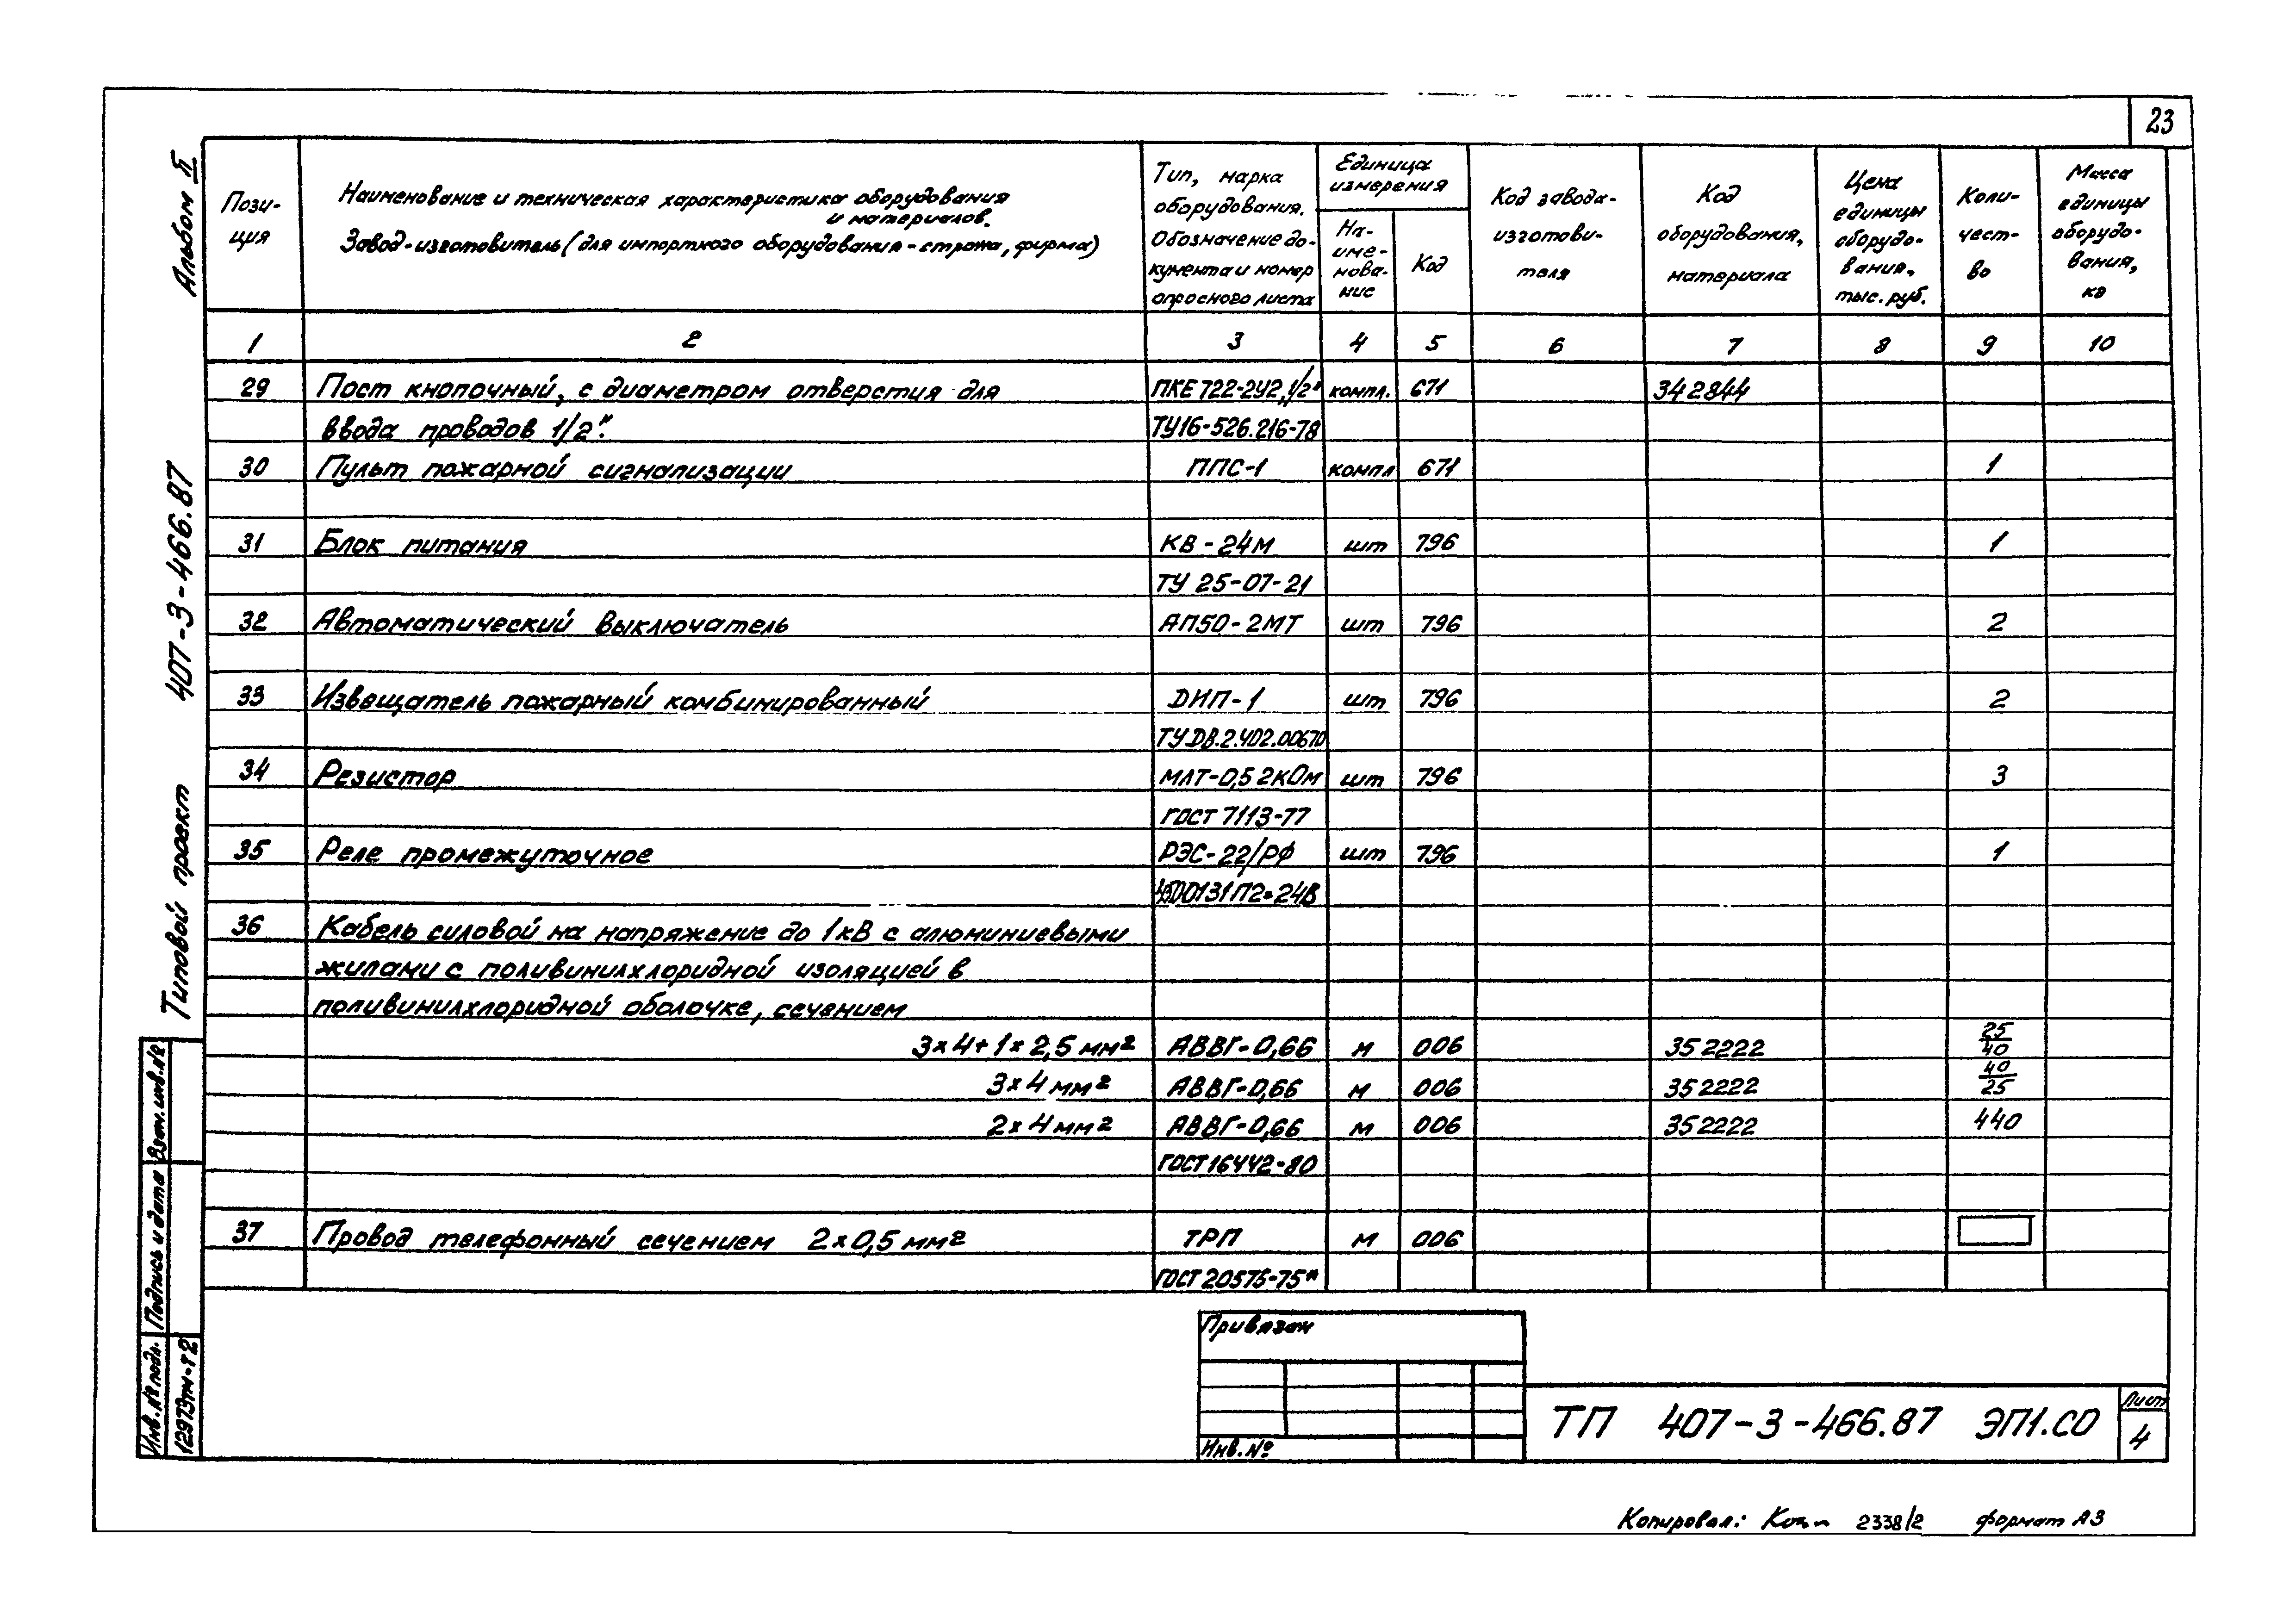 23
Альбом II
407-3-466.87
Типовой проект
Пози-
ция
Наименование и техническая характеристика оборудования
и материалов.
Завод-изготовитель (для импортного оборудования - страна, фирма)
Тип, марка
оборудования.
Обозначение до-
кумента и номер
опросного листа
Единица
измерения
На-
име-
нова-
ние
Код
Код завода-
изготови-
теля
Код
оборудования,
материала
Цена
единицы
оборудо-
вания,
тыс. руб.
Коли-
чест-
во
Масса
единицы
оборудо-
вания,
кг
1 2 3 4 5 6 7 8 9 10
29 Пост кнопочный, с диаметром отверстия для ПКЕ 722-2У2, 1/2" компл. 671 342844
ввода проводов 1/2". ТУ16-526.216-78
30 Пульт пожарной сигнализации ППС-1 компл 671 1
31 Блок питания КВ-24М шт 796 1
ТУ 25-07-21
32 Автоматический выключатель АП50-2МТ шт 796 2
33 Извещатель пожарный комбинированный ДИП-1 шт 796 2
ТУ ДВ.2.402.00670
34 Резистор МЛТ-0,5 2кОм шт 796 3
ГОСТ 7113-77
35 Реле промежуточное РЭС-22/РФ шт 796 1
4500131П2=24В
36 Кабель силовой на напряжение до 1кВ с алюминиевыми
жилами с поливинилхлоридной изоляцией в
поливинилхлоридной оболочке, сечением
3×4+1×2,5 мм² АВВГ-0,66 м 006 352222 25/40
3×4 мм² АВВГ-0,66 м 006 352222 40/25
2×4 мм² АВВГ-0,66 м 006 352222 440
ГОСТ 16442-80
37 Провод телефонный сечением 2×0,5 мм² ТРП м 006
ГОСТ 20575-75*
Взам. инв. №
Подпись и дата
Инв. № подл.
12973тм-т2
Привязан
Инв. №
ТП 407-3-466.87 ЭП1.СО
Лист
4
Копировал: 2338/2 формат А3